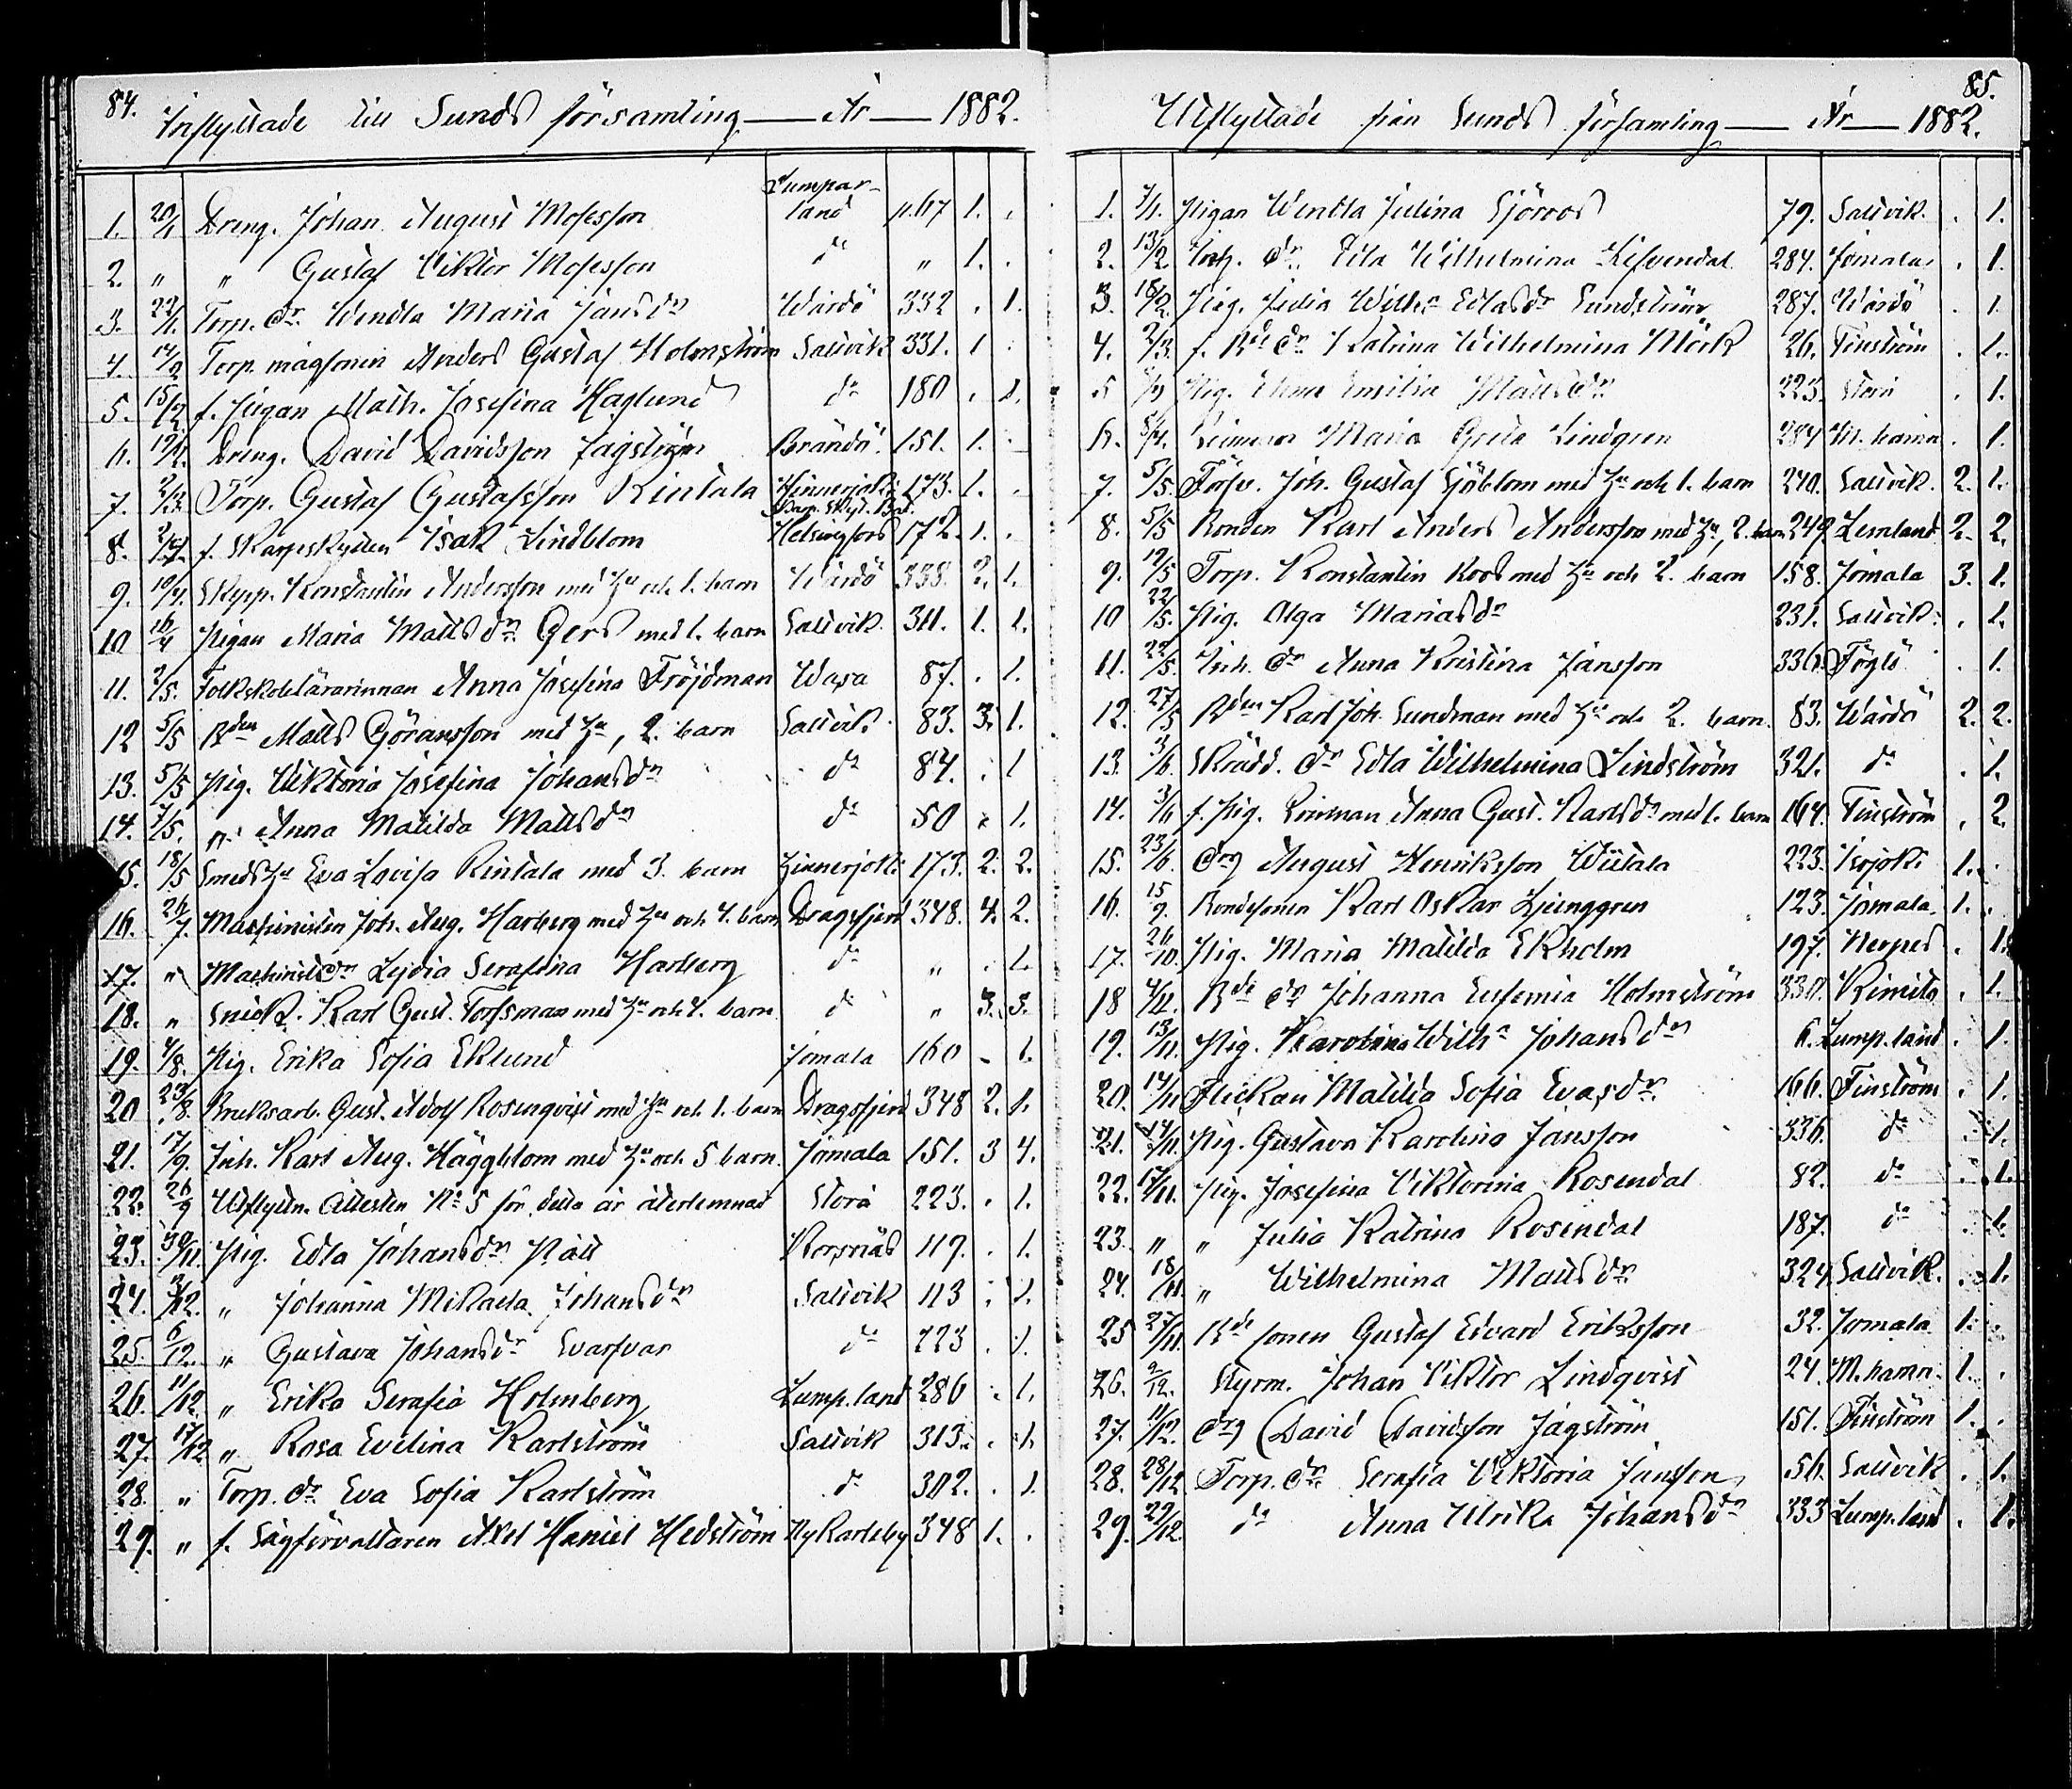 84.
Inflyttade till Sunds församling — År — 1882.
1. 20/1 Dreng. Johan August Mosesson Lumparland p.67 1. .
2. " " Gustaf Viktor Mosesson do " 1. .
3. 22/1. Torp. dr. Wendla Maria Jansdr Wårdö 332 . 1.
4. 14/2 Torp. mågsonen Anders Gustaf Holmström Saltvik 331. 1 .
5. 15/2 f. Pigan Math. Josefina Haglund do 180 . 1.
6. Dreng. David Davidsson Jagström Brändö 151. 1. .
7. 2/3. Torp. Gustaf Gustafsson Rintala Hinnerjoki 173. 1. .
8. f. Skarpskytten Isak Lindblom Helsingfors 172. 1. .
9. 10/4. Skepp. Konstantin Andersson med hu och 1. barn Wårdö 338. 2. 1.
10 16/4 Pigan Maria Mattsdr Gers med 1. barn Saltvik 311. 1. 1.
11. 2/5. Folkskolelärarinnan Anna Josefina Fröjdman Wasa 87. . 1.
12 5/5 Bden Matts Göransson med hu, 2. barn Saltvik 83. 3. 1.
13. 5/5 Pig. Viktoria Josefina Johansdr do 84. . 1
14. 7/5. " Anna Matilda Mattsdr do 50 . 1.
15. 18/5 Smeds hu Eva Lovisa Rintala med 3. barn Hinnerjoki 173. 2. 2.
16. 26/7. Maskinisten Joh. Aug. Harberg med hu och 4. barn Dragsfjerd 348. 4. 2.
17. " Maskinistdr Lydia Serafina Harberg do " . 1.
18. " Snick. Karl Gust. Forsman med hu och 4. barn do " 3. 3.
19. 4/8. Pig. Erika Sofia Eklund Jomala 160 - 1.
20 23/8. Bruksarb. Gust. Adolf Rosenqvist med hu och 1. barn Dragsfjerd 348 2. 1.
21. 17/9. Inh. Karl Aug. Häggblom med hu och 5 barn Jomala 151. 3 4.
22. 26/9 Utflyttn. Attesten No 5 för detta år återlemnad Storå 223. . 1.
23. 30/11. Pig. Edla Johansdr Rätt Korsnäs 119. . 1.
24. 2/12. " Johanna Mikaela Johansdr Saltvik 113 . 1.
25. 6/12. " Gustava Johansdr Svarfvar do 223 . 1.
26. 11/12. " Erika Serafia Holmberg Lump.land 286 . 1.
27. 17/12 " Rosa Evelina Karlström Saltvik 313. . 1.
28. " Torp. dr Eva Sofia Karlström do 302. . 1.
29. " f. Sågförvaltaren Axel Haniel Hedström NyKarleby 348 1. .
85.
Utflyttade från Sunds församling — År — 1882.
1. Pigan Wendla Julina Sjöroos 79. Saltvik. . 1.
2. 13/2. Inh. dr. Edla Wilhelmina Lifvendal 284. Jomala . 1.
3. 18/2. Pig. Julia Wilh:a Edlasdr Sundström 287. Wårdö . 1.
4. 2/3. f. Bde dr Katrina Wilhelmina Mörk 26. Finström . 1.
5 Pig. Emilia Mattsdr 223. Storå . 1.
6. 5/4. Maria Greta Lindgren 284 M.hamn . 1.
7. 5/5. Förpv. Joh. Gustaf Sjöblom med hu och 1. barn 240. Saltvik. 2. 1.
8. 5/5 Bonden Karl Anders Andersson med hu, 2. barn 249. Lemland 2. 2.
9. 12/5 Torp. Konstantin Roos med hu och 2. barn 158. Jomala 3. 1.
10 22/5. Pig. Olga Mariasdr 231. Saltvik . 1.
11. 22/5. Inh. dr Anna Kristina Jansson 336. Föglö . 1.
12. 27/5 Bden Karl Joh. Sundman med hu och 2. barn. 83. Wårdö 2. 2.
13. 3/6. Skrädd. dr Edla Wilhelmina Lindström 321. do . 1.
14. 3/6 f. Pig. Anna Gust. Karlsdr med 1. barn 164. Finström . 2.
15. 23/6. Drg August Henriksson Wiitala 223. Isojoki 1. .
16. 15/9. Bondsonen Karl Oskar Ljunggren 123. Jomala 1. .
17. 26/10. Pig. Maria Matilda Ekholm 197. Nerpes . 1.
18 4/11. Bde dr Johanna Eufemia Holmström 330. Kimito . 1.
19. 13/11. Pig. Karolina Wilh:a Johansdr 6. Lump.land . 1.
20. 14/11 Flickan Matilda Sofia Evasdr 166. Finström . 1.
21. 14/11. Pig. Gustava Karolina Jansson 336. do . 1.
22. 17/11. Pig. Josefina Viktorina Rosendal 82. do . 1.
23. " " Julia Katrina Rosendal 187. do . 1.
24. 18/11. " Wilhelmina Mattsdr 324. Saltvik. . 1.
25 27/11. Bde sonen Gustaf Edvard Eriksson 32. Jomala 1. .
26. 2/12. Styrm. Johan Viktor Lindqvist 24. M.hamn. 1. .
27. 11/12. Drg David Davidsson Jagström 151. Finström 1. .
28. 28/12 Torp. dr Serafia Viktoria Jansson 56. Saltvik . 1.
29. 29/12. do Anna Ulrika Johansdr 333 Lump.land . 1.